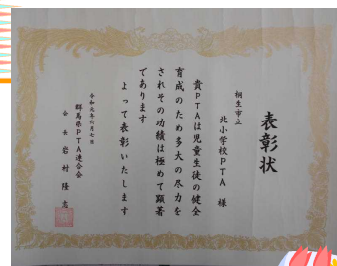 表彰状
桐生市立
北小学校PTA 様
貴PTAは児童生徒の健全
育成のため多大の尽力を
されその功績は極めて顕著
であります
よって表彰いたします
令和元年六月七日
群馬県PTA連合会
会長 岩村隆志